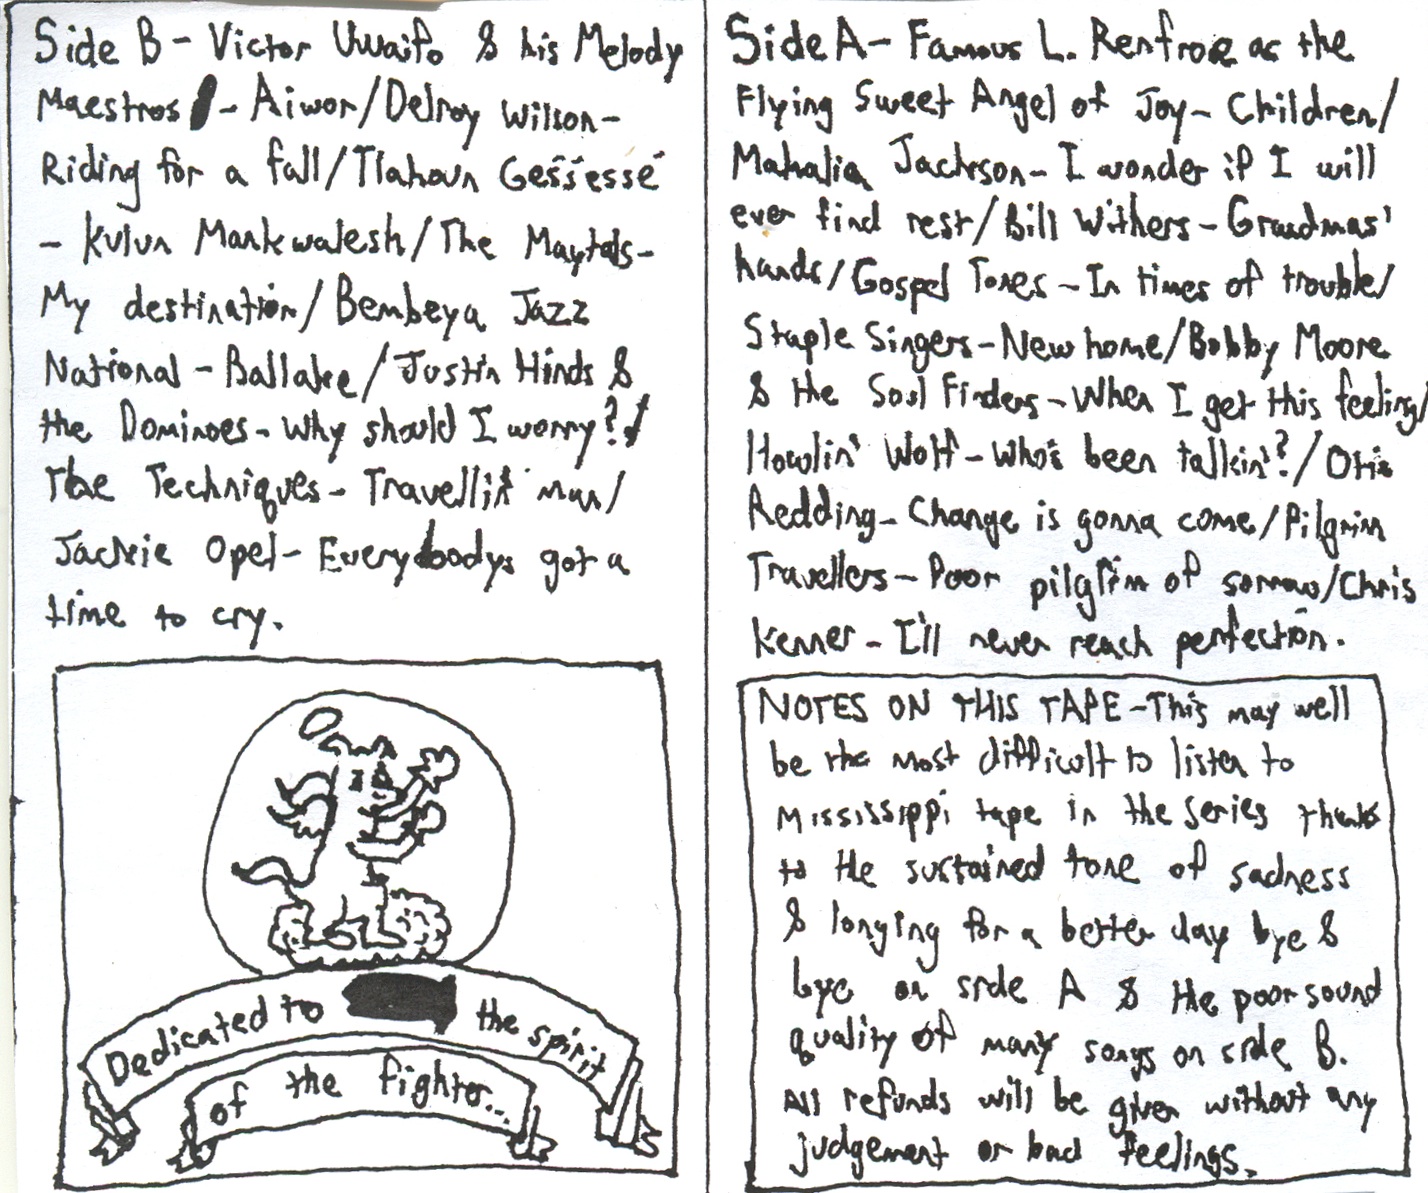 Side B - Victor Uwaifo & his Melody
Maestros - Aiwor/Delroy Wilson-
Riding for a fall/Tlahoun Gesšessé
- Kulun Mankwalesh/The Maytals-
My destination/Bembeya Jazz
National - Ballake/Justin Hinds &
the Dominoes - Why should I worry?/
The Techniques - Travellin' man/
Jackie Opel - Everybodys got a
time to cry.
Dedicated to the spirit
of the fighter...
Side A - Famous L. Renfroe as the
Flying Sweet Angel of Joy - Children/
Mahalia Jackson - I wonder if I will
ever find rest/Bill Withers - Grandmas'
hands/Gospel Tones - In times of trouble/
Staple Singers - New home/Bobby Moore
& the Soul Finders - When I get this feeling/
Howlin' Wolf - Who's been talkin'?/Otis
Redding - Change is gonna come/Pilgrim
Travellers - Poor pilgrim of sorrow/Chris
Kenner - I'll never reach perfection.
NOTES ON THIS TAPE - This may well
be the most difficult to listen to
Mississippi tape in the series thanks
to the sustained tone of sadness
& longing for a better day bye &
bye on side A & the poor sound
quality of many songs on side B.
All refunds will be given without any
judgement or bad feelings.